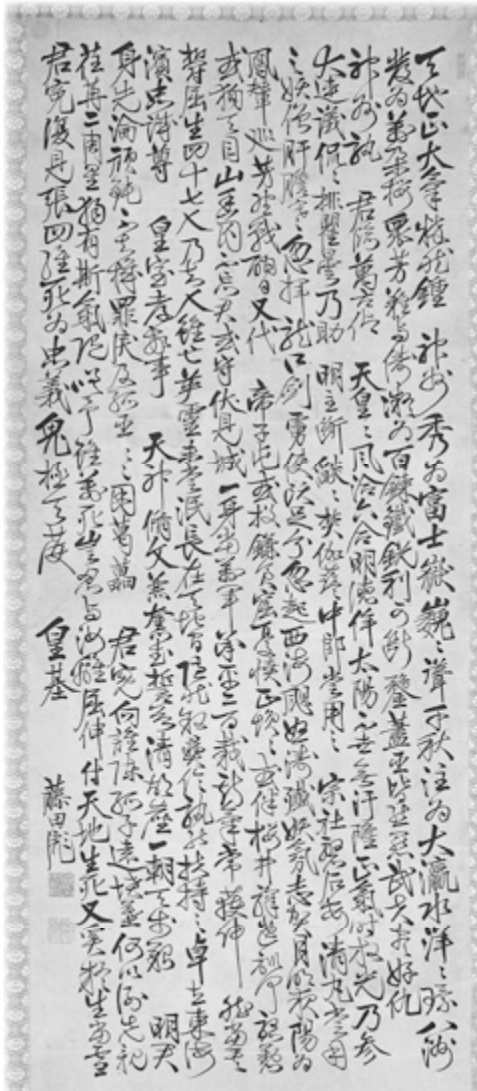 天地正大氣粹然鍾 神州秀為富士嶽巍々聳千秋注為大瀛水洋々環八洲
發為萬朶櫻衆芳難与儔凝為百錬鐵鋭利可断鍪藎臣皆熊羆武夫盡好仇
神州孰 君臨萬古仰 天皇々風洽六合明徳侔太陽不世無汙隆正氣時放光乃参
大連議侃々排瞿曇乃助 明主断燄々焚伽藍中郎嘗用之 宗社磐石安清丸嘗用
之妖僧肝膽寒忽揮龍口劍虜使頭足分忽起西海颶怒濤殲妖氛志賀月明夜陽為
鳳輦巡芳野戰酣日又代 帝子屯或投鎌倉窟憂憤正愪々或伴櫻井驛遺訓何慇懃
或殉天目山幽囚不忘君或守伏見城一身當萬軍承平二百歳斯氣常獲伸然當其
鬱屈生四十七人乃知人雖亡英靈未嘗泯長在天地間隠然叙彝倫孰能扶持之卓立東海
濱忠誠尊 皇室孝敬事 天神脩文兼奮武誓欲清胡塵一朝天歩艱 明君
身先淪頑鈍不知機罪戻及孤臣々々困葛藟 君冤向誰陳孤子遠墳墓何以謝先親
荏苒二周星獨有斯氣隨嗟予雖萬死豈忍与汝離屈伸付天地生死又奚疑生當雪
君冤復見張四維死為忠義鬼極天護 皇基 藤田彪